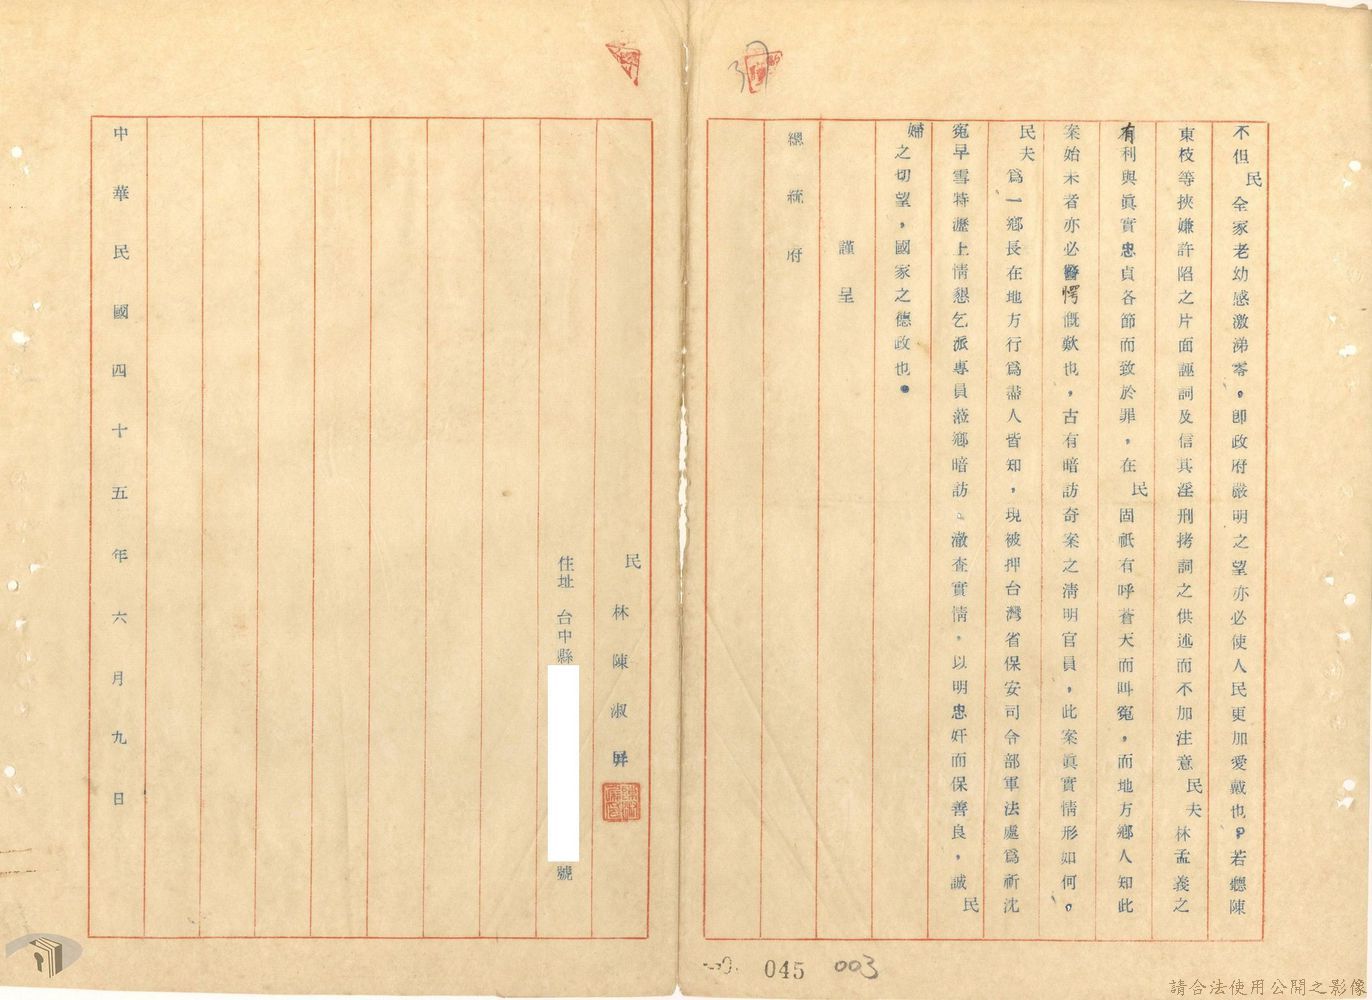 不但民全家老幼感激涕零。卽政府嚴明之望亦必使人民更加愛戴也。若聽陳
東枝等挾嫌訐陷之片面誣詞及信其淫刑拷詞之供述而不加注意民夫林孟義之
有利與眞實忠貞各節而致於罪，在民固祇有呼蒼天而叫寃，而地方鄉人知此
案始末者亦必驚愕慨歎也，古有暗訪奇案之淸明官員，此案眞實情形如何。
民夫爲一鄉長在地方行爲盡人皆知，現被押台灣省保安司令部軍法處爲祈沈
寃早雪特瀝上情懇乞派專員蒞鄉暗訪。澈查實情。以明忠奸而保善良，誠民
婦之切望，國家之德政也。
謹呈
總統府
民 林陳淑屏
住址 台中縣 號
中華民國四十五年六月九日
045
003
請合法使用公開之影像